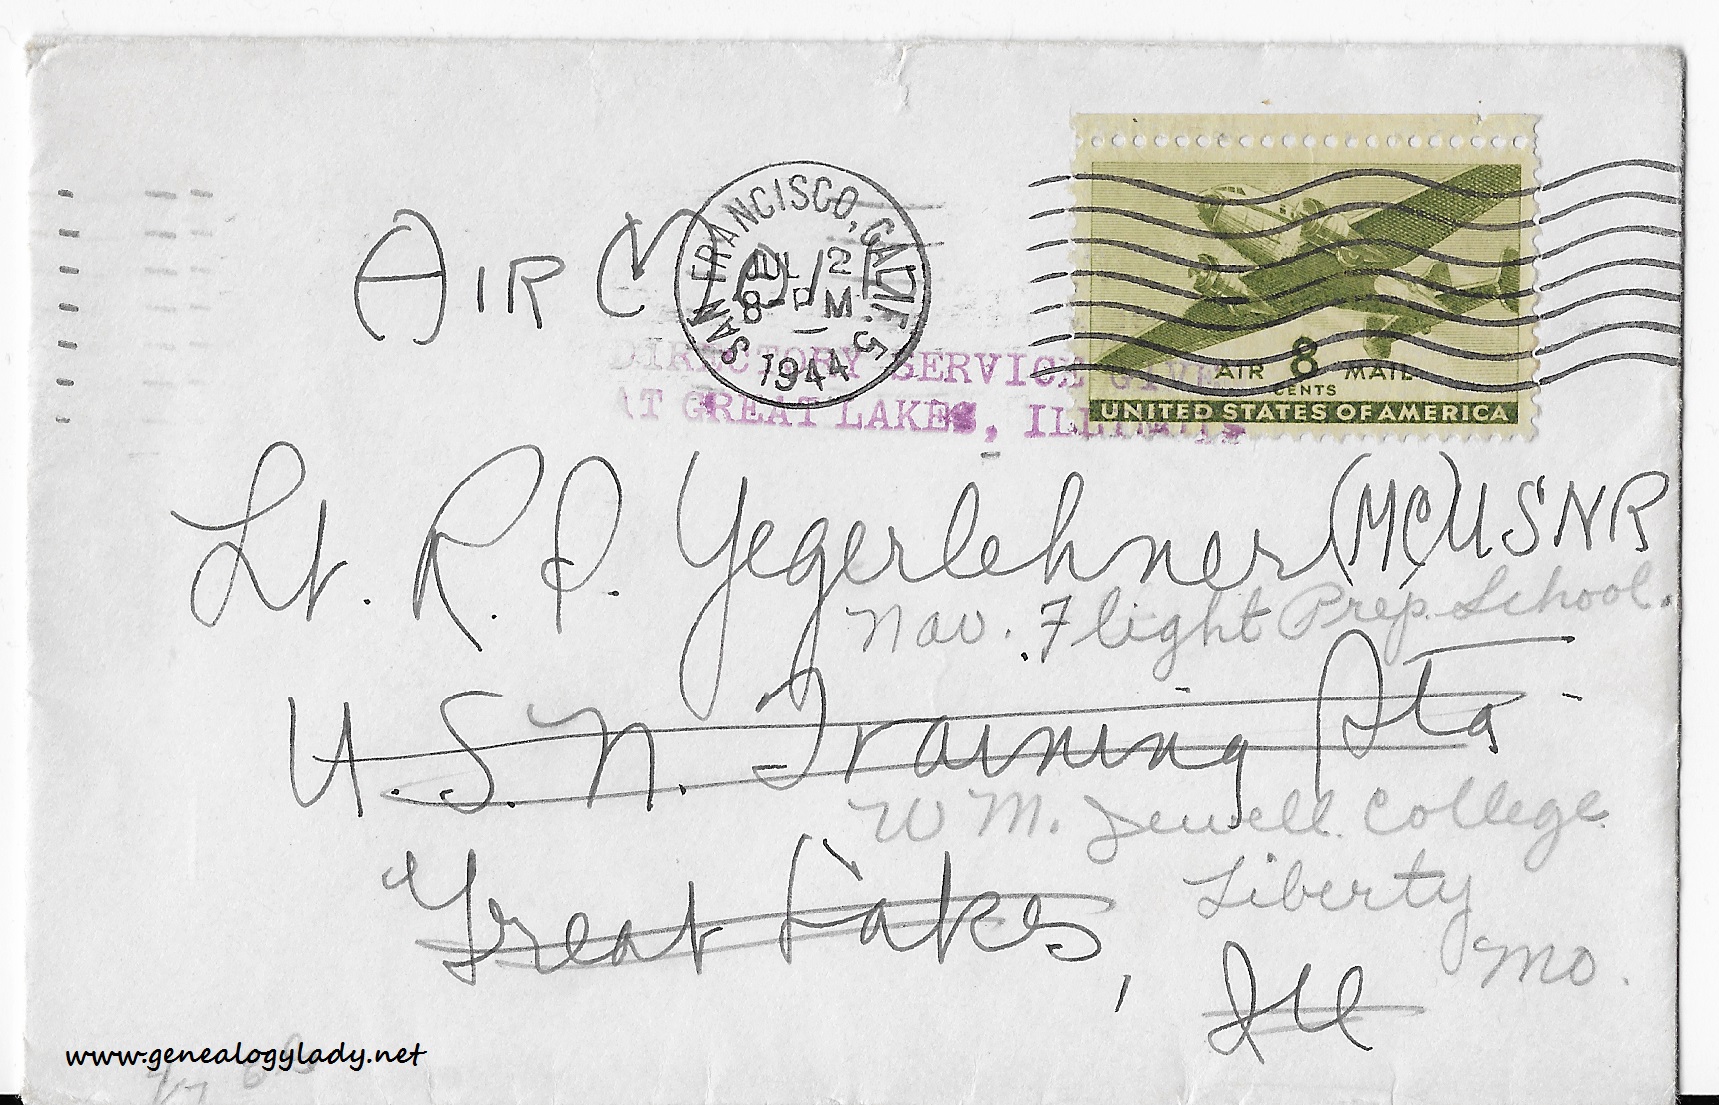 AIR
SAN FRANCISCO, CALIF. 5
JUL 2
8-PM
1944
DIRECTORY SERVICE GIVE
AT GREAT LAKES, ILLINOIS
AIR 8 MAIL
CENTS
UNITED STATES OF AMERICA
Lt. R. P. Yegerlehner (MC) USNR
Nav. Flight Prep. School.
U.S.N. Training Sta
Wm. Jewell College
Great Lakes, Ill
Liberty
Mo.
www.genealogylady.net